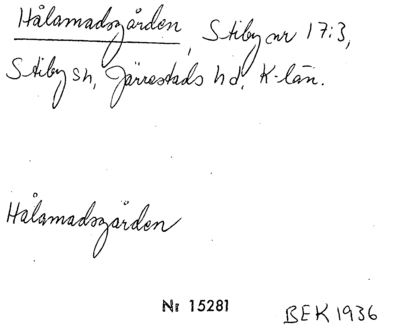 Hålamadsgården, Stiby nr 17:3,
Stiby sn, Järrestads hd, K-län.
Hålamadsgården
Nr 15281
BEK 1936